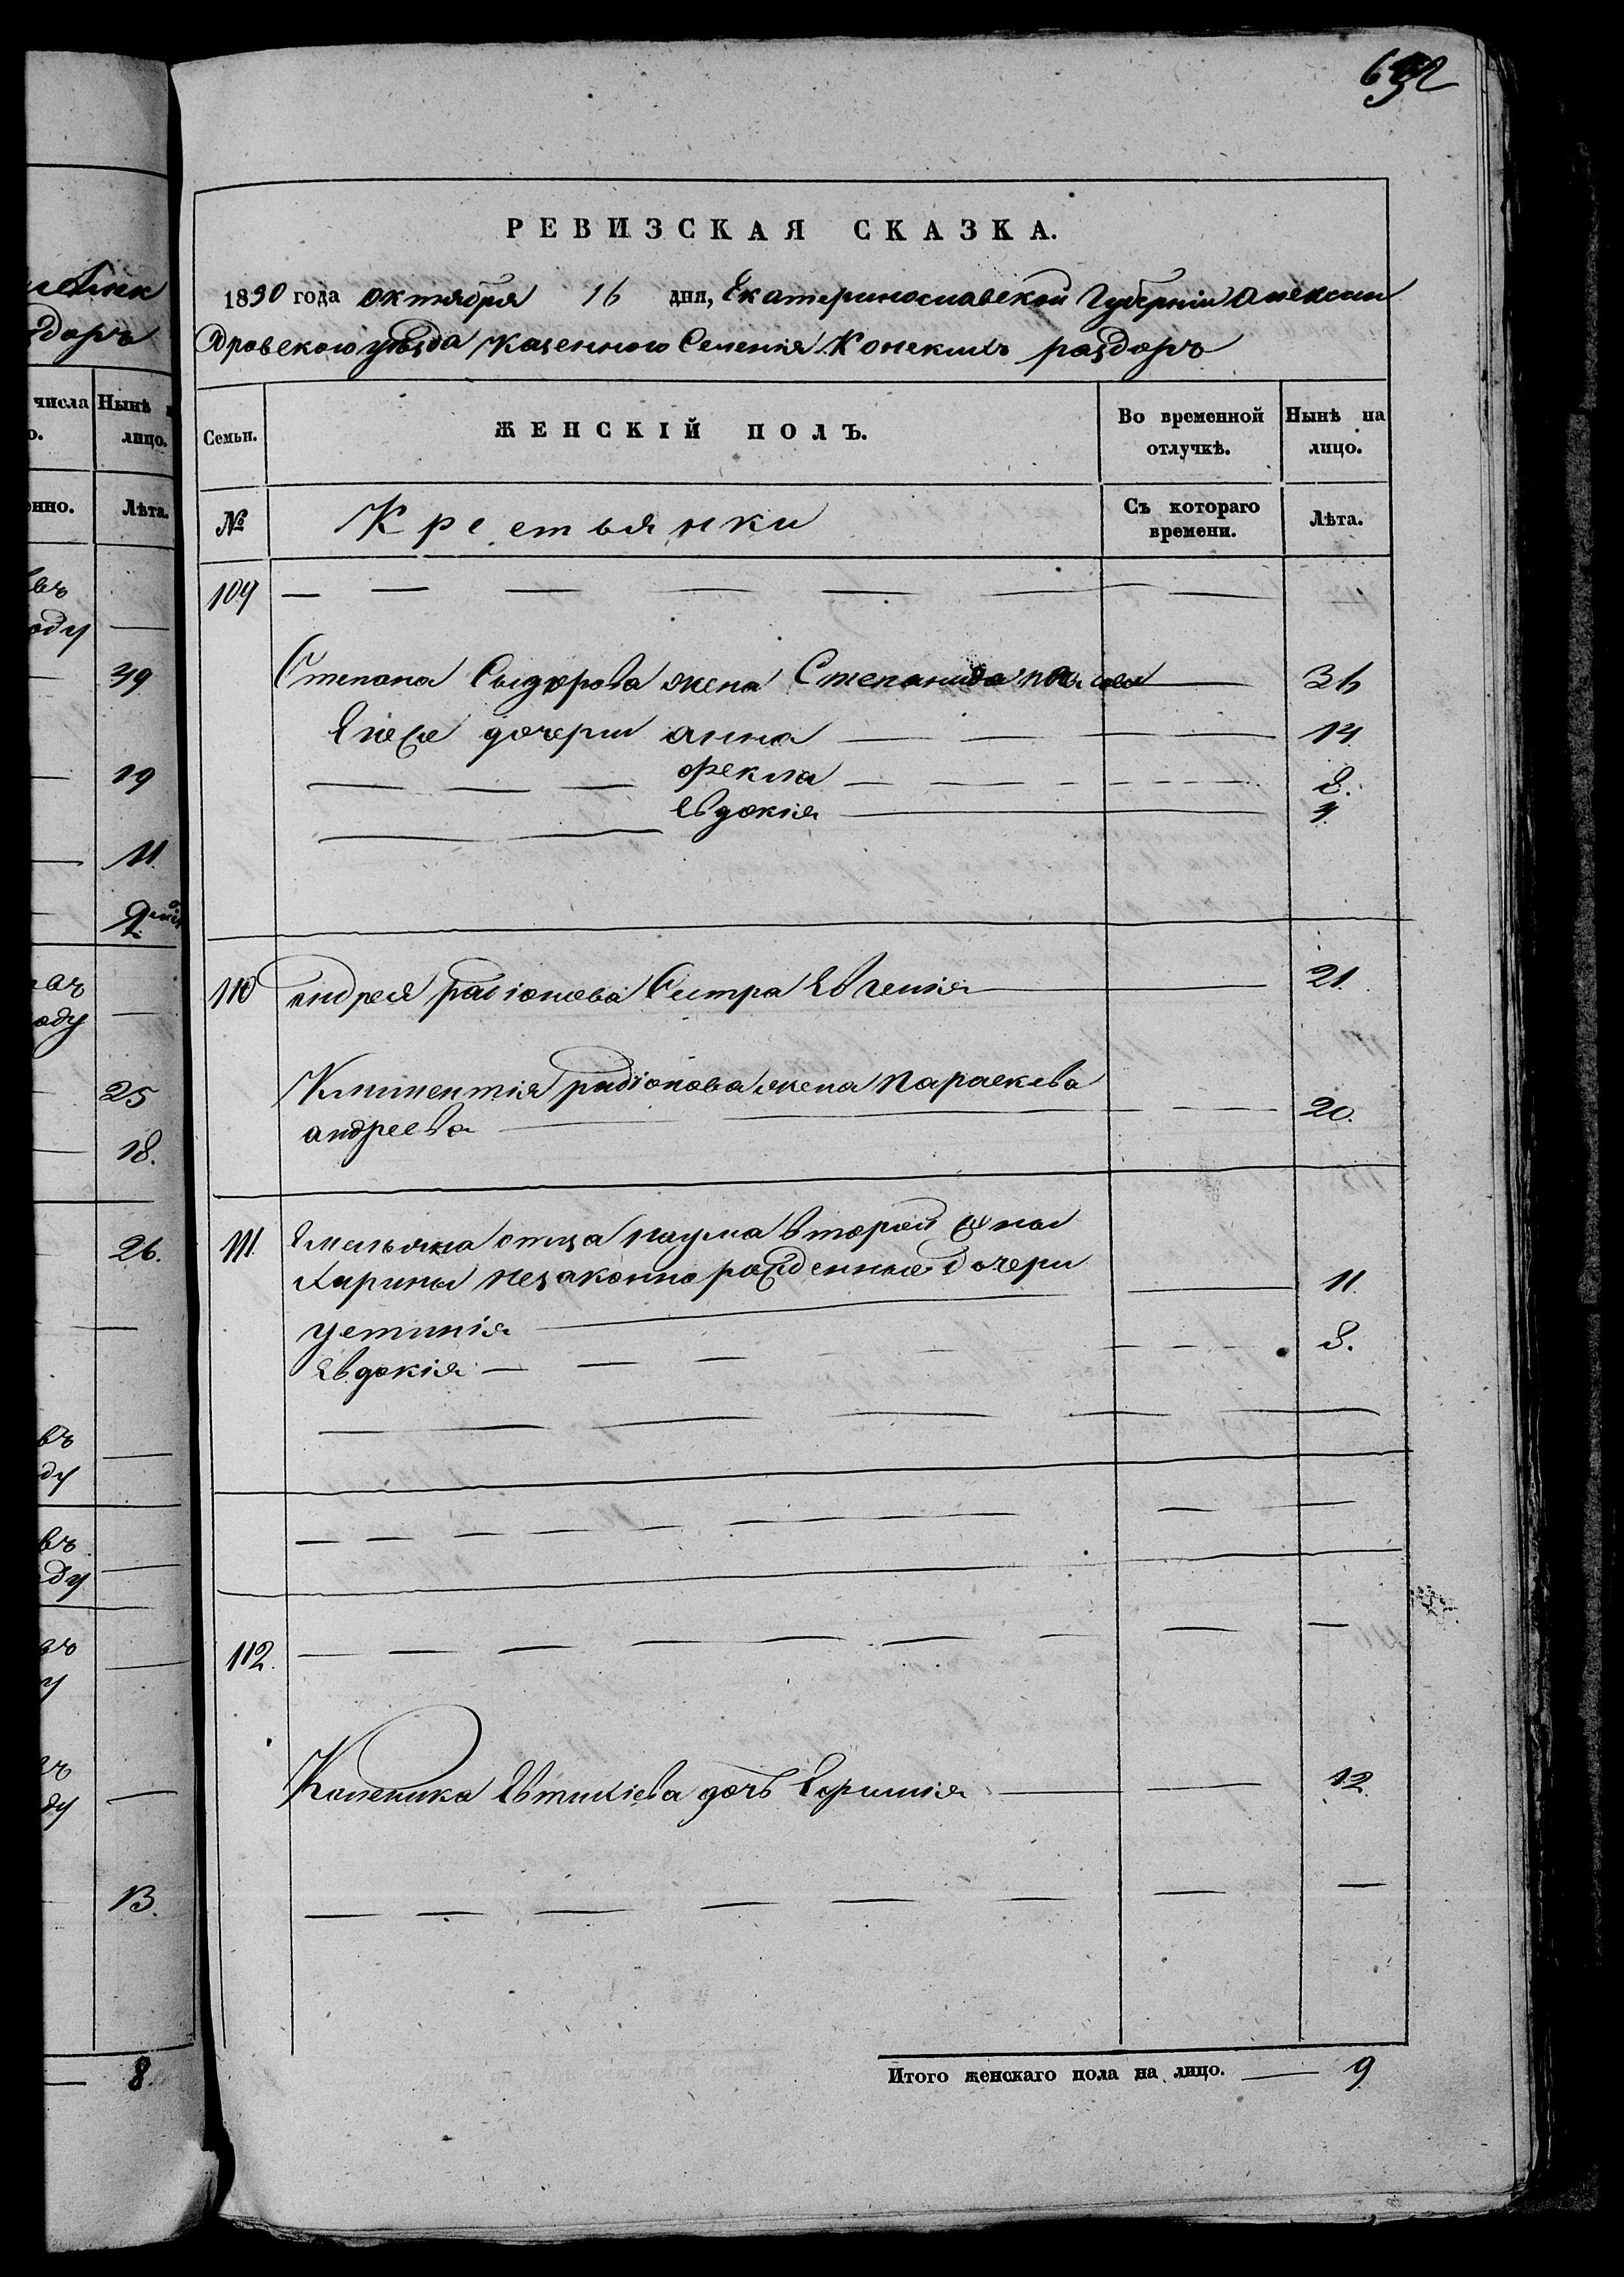 632
РЕВИЗСКАЯ СКАЗКА.
1850 года октября 16 дня, Екатеринославской Губернiи Алексан
дровского уѣзда казенного Селенiя Конскихъ раздоръ
Семьи. ЖЕНСКIЙ ПОЛЪ. Во временной отлучкѣ. Нынѣ на лицо.
№ Крестьянки Съ котораго времени. Лѣта.
109
Степана Сыдорова жена Степанида 36
Его дочери анна 14
Фекла 8.
Евдокiя 4
110 андрея радiонова Сестра Евгенiя 21.
Климентiя радiонова жена Параскева
андреева 20.
111. Емельяна отца наума второй жены
Ирины незаконно рожденные дочери 11
Устинiя
Евдокiя 8.
112.
Евтихiева дочь 12.
Итого женскаго пола на лицо. 9
числа Нынѣ
лицо.
Лѣта.
49
19
11.
25
18.
26.
13.
8.